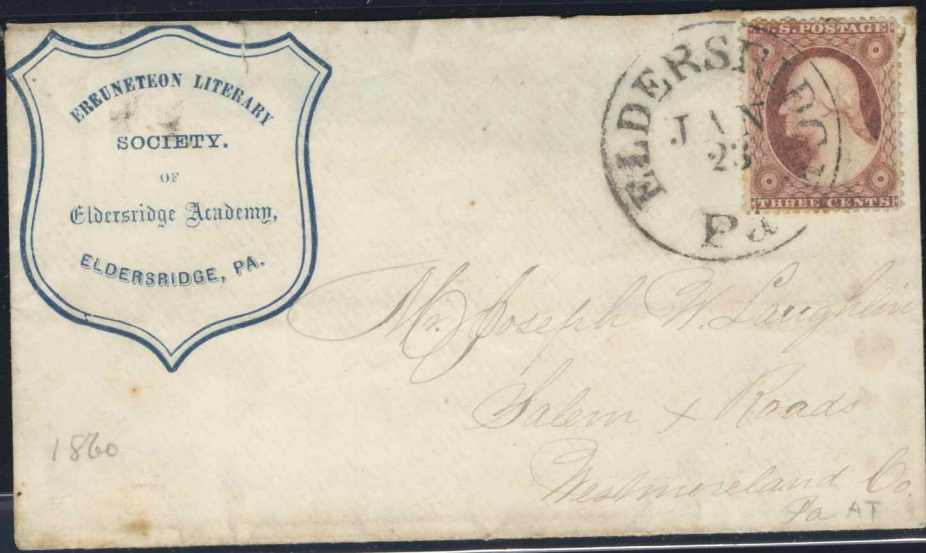 EREUNETEON LITERARY
SOCIETY.
OF
Eldersridge Academy,
ELDERSRIDGE, PA.
ELDERSRIDGE
JAN
23
Pa
U.S. POSTAGE
THREE CENTS
Mr. Joseph W. Laughlin
Salem X Roads
Westmoreland Co.
Pa
AT
1860